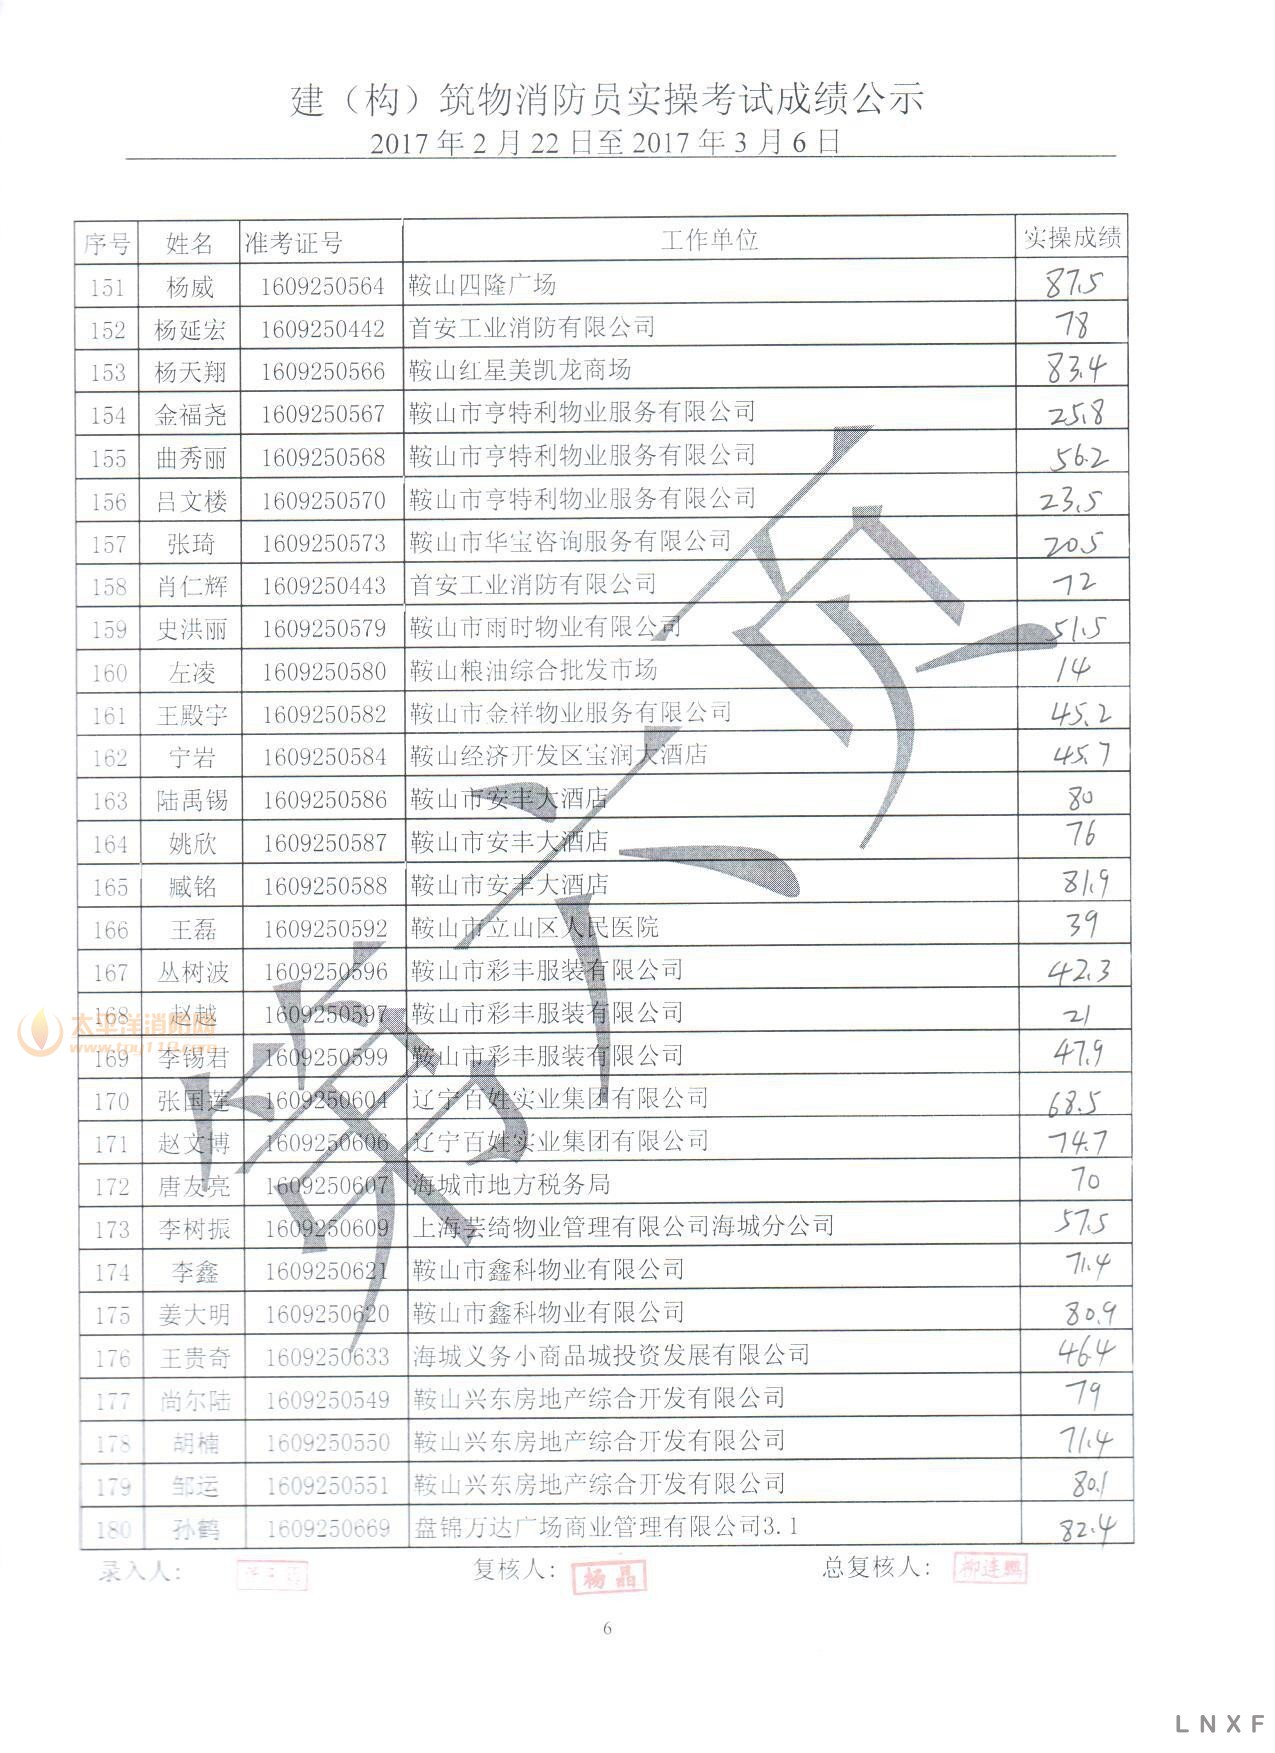 建（构）筑物消防员实操考试成绩公示
2017年2月22日至2017年3月6日
序号 姓名 准考证号 工作单位 实操成绩
151 杨威 1609250564 鞍山四隆广场 87.5
152 杨延宏 1609250442 首安工业消防有限公司 78
153 杨天翔 1609250566 鞍山红星美凯龙商场 83.4
154 金福尧 1609250567 鞍山市亨特利物业服务有限公司 25.8
155 曲秀丽 1609250568 鞍山市亨特利物业服务有限公司 56.2
156 吕文楼 1609250570 鞍山市亨特利物业服务有限公司 23.5
157 张琦 1609250573 鞍山市华宝咨询服务有限公司 20.5
158 肖仁辉 1609250443 首安工业消防有限公司 72
159 史洪丽 1609250579 鞍山市雨时物业有限公司 51.5
160 左凌 1609250580 鞍山粮油综合批发市场 14
161 王殿宇 1609250582 鞍山市金祥物业服务有限公司 45.2
162 宁岩 1609250584 鞍山经济开发区宝润大酒店 45.7
163 陆禹锡 1609250586 鞍山市安丰大酒店 80
164 姚欣 1609250587 鞍山市安丰大酒店 76
165 臧铭 1609250588 鞍山市安丰大酒店 81.9
166 王磊 1609250592 鞍山市立山区人民医院 39
167 丛树波 1609250596 鞍山市彩丰服装有限公司 42.3
168 赵越 1609250597 鞍山市彩丰服装有限公司 21
169 李锡君 1609250599 鞍山市彩丰服装有限公司 47.9
170 张国莲 1609250604 辽宁百姓实业集团有限公司 68.5
171 赵文博 1609250606 辽宁百姓实业集团有限公司 74.7
172 唐友亮 1609250607 海城市地方税务局 70
173 李树振 1609250609 上海芸绮物业管理有限公司海城分公司 57.5
174 李鑫 1609250621 鞍山市鑫科物业有限公司 71.4
175 姜大明 1609250620 鞍山市鑫科物业有限公司 80.9
176 王贵奇 1609250633 海城义务小商品城投资发展有限公司 46.4
177 尚尔陆 1609250549 鞍山兴东房地产综合开发有限公司 79
178 胡楠 1609250550 鞍山兴东房地产综合开发有限公司 71.4
179 邹运 1609250551 鞍山兴东房地产综合开发有限公司 80.1
180 孙鹤 1609250669 盘锦万达广场商业管理有限公司3.1 82.4
录入人： 复核人： 杨晶 总复核人： 柳连兴
6
第六页
太平洋消防网
www.tpy119.com
LNXF